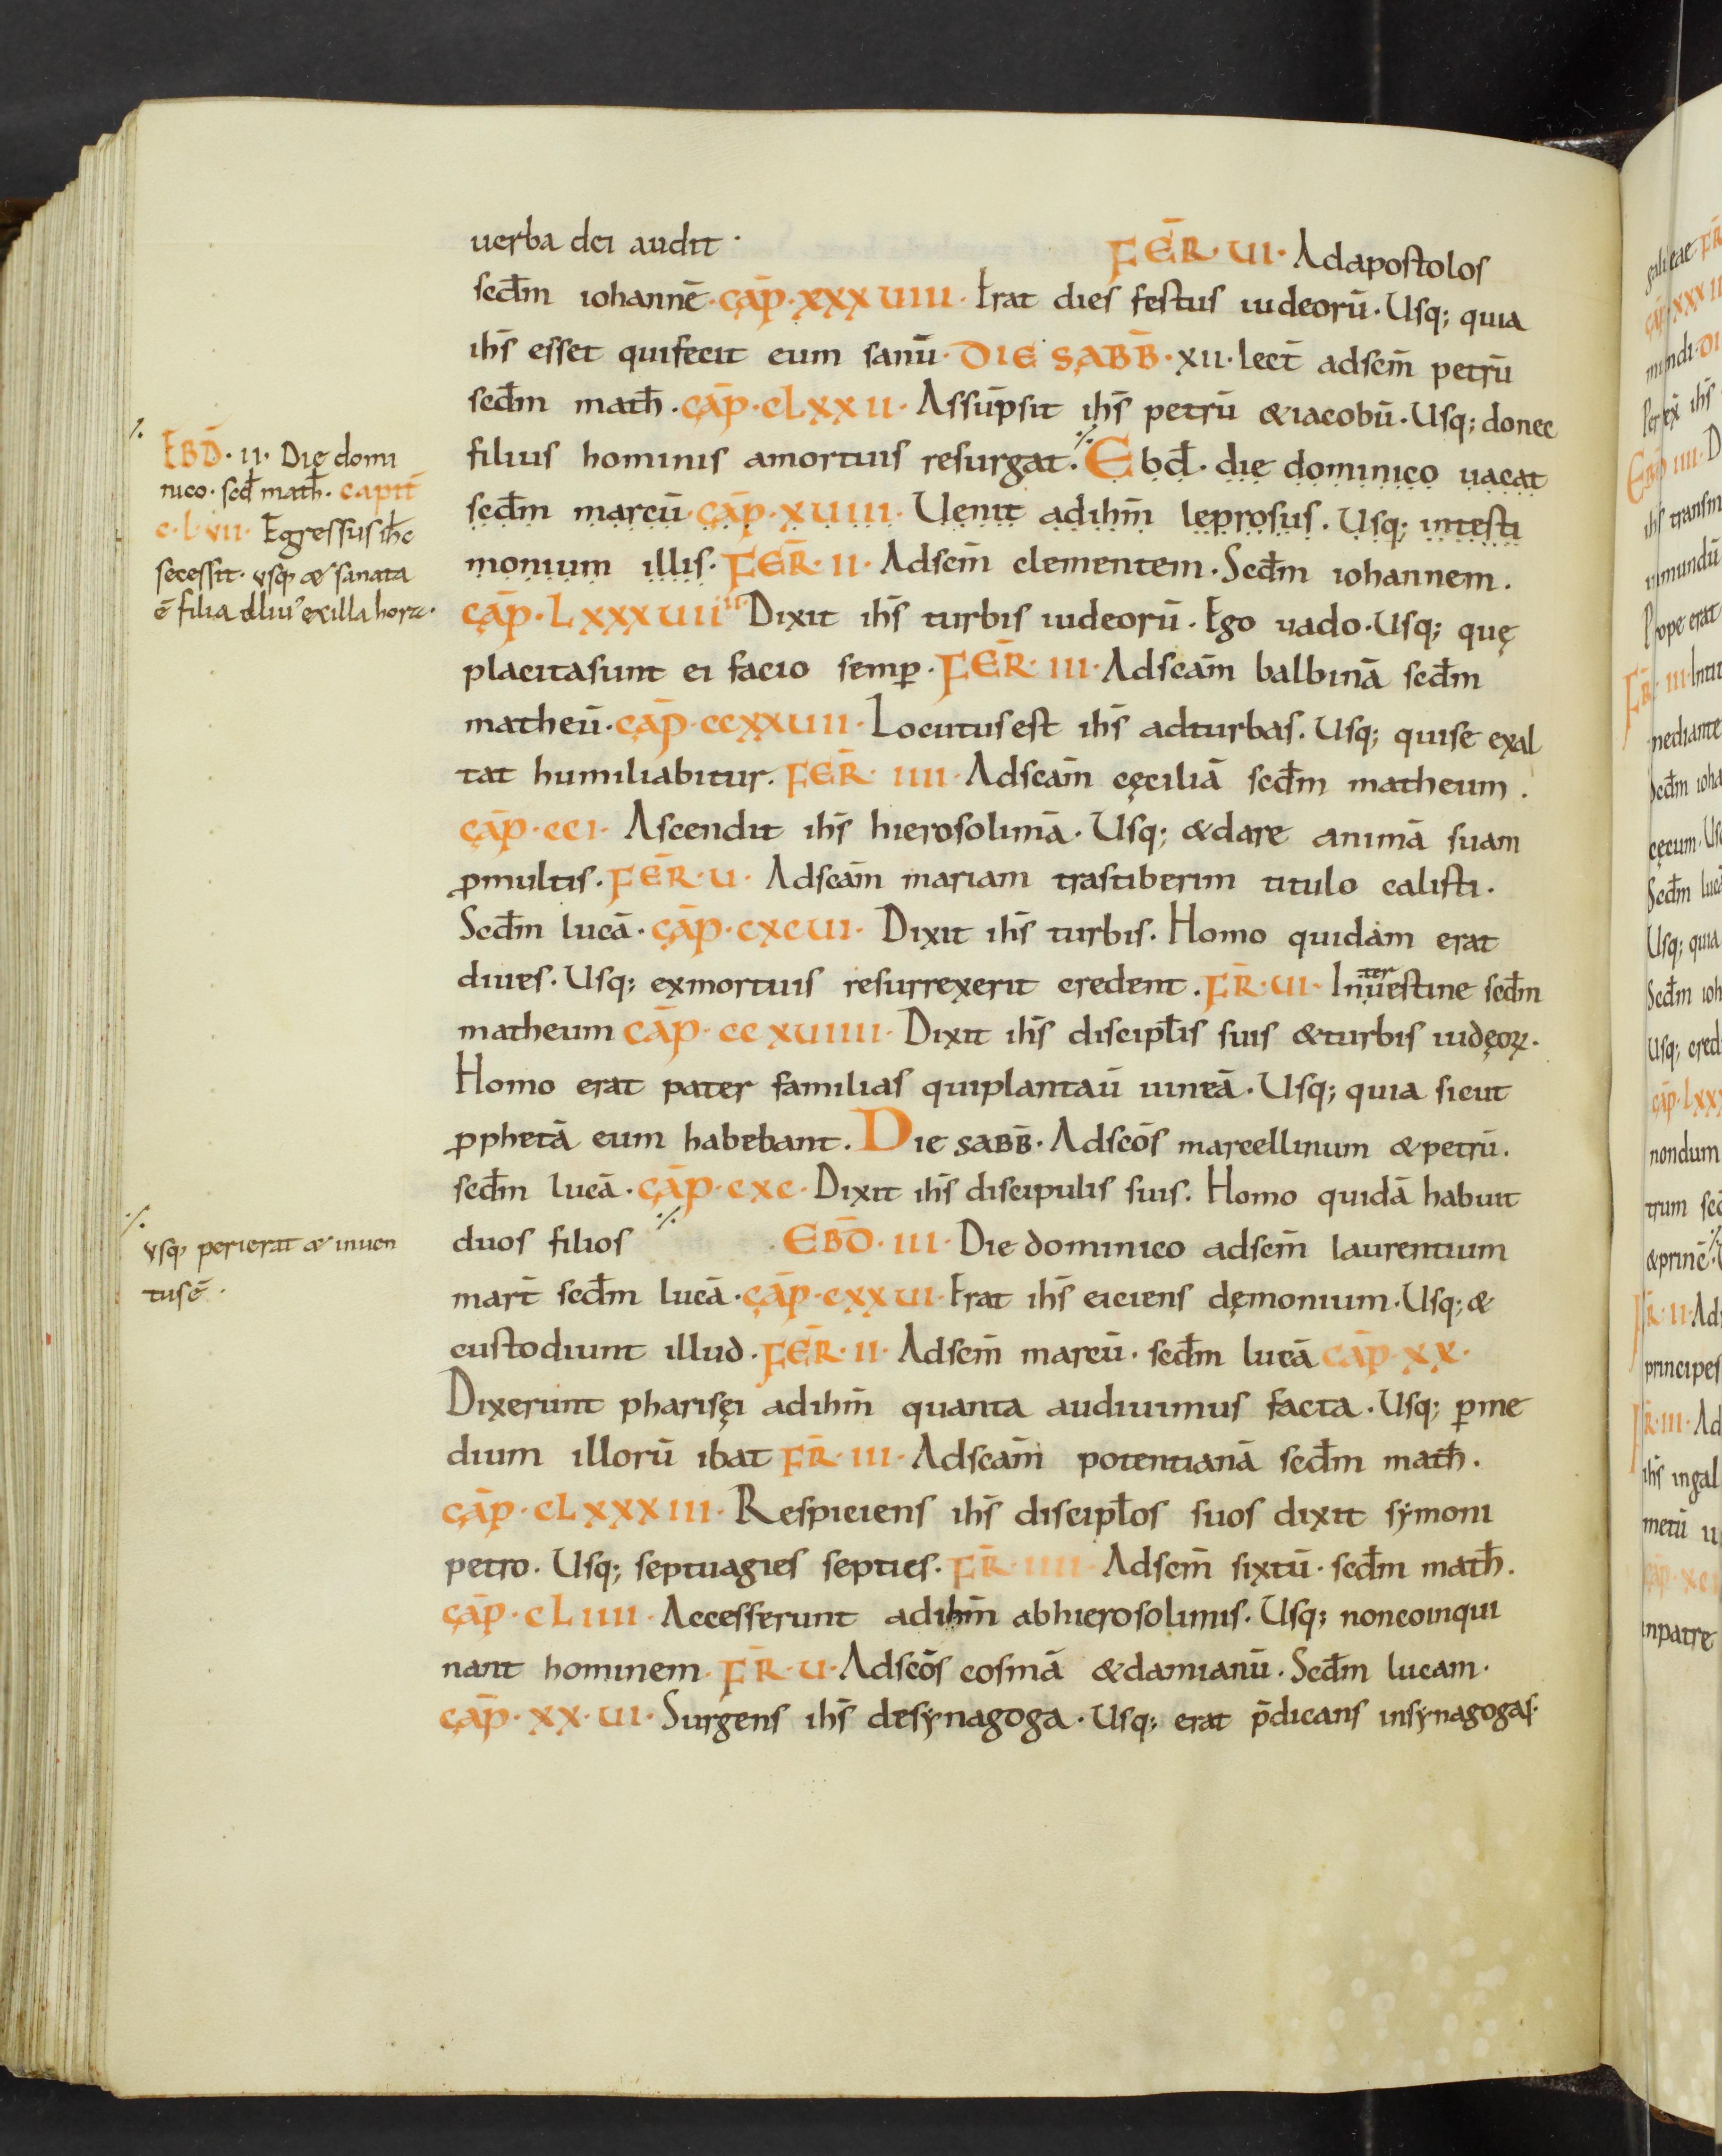 uerba dei audit· FER̄·UI· Adapostolos
sed̄m iohannē·CAP̄·XXXUIIII· Erat dies festus iudeorū·Usq; quia
ih̄s esset quifecit eum sanū·DIE SABB̄·XII·lect̄ adsc̄m petrū
scd̄m math̄·CAP̄·CLXXII· Assūpsit ih̄s petrū &iacobū·Usq; donec
filius hominis amortuis resurgat·⁒ Ebd̄·die dominico uacat
scd̄m marcū·CAP̄·XUIII· Uenit adihm̄ leprosus·Usq; intesti
monium illis·FER̄·II·Adsc̄m clementem·Scd̄m iohannem·
CAP̄·LXXXUIIII Dixit ih̄s turbis iudeorū·Ego uado·Usq; quę
placitasunt ei facio semꝑ·FER̄·III·Adscām balbinā scd̄m
matheū·CAP̄·CCXXUIII·Locutusest ih̄s adturbas·Usq; quise exal
tat humiliabitur·FER̄·IIII·Adscām cęciliā scd̄m matheum·
CAP̄·CCI· Ascendit ih̄s hierosolimā·Usq; &dare animā suam
ꝓmultis·FER̄·U· Adscām mariam trastiberim titulo calisti·
Scd̄m lucā·CAP̄·CXCUI· Dixit ih̄s turbis·Homo quidam erat
diues·Usq; exmortuis resurrexerit credent·FR̄·UI·Inuestine scd̄m
ter
matheum CAP̄·CCXUIIII·Dixit ih̄s discipl̄is suis &turbis iudęoꝝ·
Homo erat pater familias quiplantaū uineā·Usq; quia sicut
ꝓphetā eum habebant·Die SABB̄·Adscōs marcellinum &petrū·
scd̄m lucā·CAP̄·CXC·Dixit ih̄s discipulis suis·Homo quidā habuit
duos filios ⁒ ·EBD̄·III·Die dominico adsc̄m laurentium
mart̄ scd̄m lucā·CAP̄·CXXUI·Erat ih̄s eiciens dęmonium·Usq; &
custodiunt illud·FER̄·II·Adsc̄m marcū·scd̄m lucā CAP̄·XX·
Dixerunt pharisęi adihm̄ quanta audiuimus facta·Usq; ꝑme
dium illorū ibat FR̄·III·Adscām potentianā scd̄m math̄·
CAP̄·CLXXXIII·Respiciens ih̄s discipl̄os suos dixit sẏmoni
petro·Usq; septuagies septies·FR̄·IIII·Adsc̄m sixtū·scd̄m math̄·
CAP̄·CLIIII·Accesserunt adihm̄ abhierosolimis·Usq; noncoinqui
nant hominem·FR̄·U·Adscōs cosmā &damianū·Scd̄m lucam·
CAP̄·XX·UI·Surgens ih̄s desẏnagoga·Usq; erat p̄dicans insẏnagogas·
⁒
EBD̄·II·Die domi
nico·scd̄ math̄·capit̄
C·L·VII·Egressus ih̄c
secessit·vsq̣ & sanata
ē filia illiu' exilla hora·
⁒
vsq̣ perierat & inuen
tusē·
galileae FR̄
CAP̄·XXXII
mundi·DI
ih̄s
EBD̄ IIII·D
ih̄s transm
inmundū
Prope erat
FR̄·III·
mediante
Scd̄m ioha
cęcum·Us
Scd̄m luc
Usq; quia
Scd̄m ioh
Usq; cred
CAP̄·LXX
nondum
trum sc
&princ̄·⁒
FR̄·II·Ad
principes
FR̄·III·Ad
ih̄s ingal
metū u
CAP̄·XC
inpatre